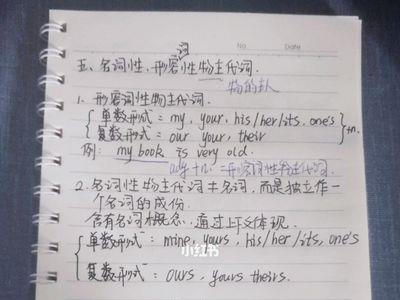 No.  Date
词
五、名词性、形容性物主代词.
物的主人
1. 形容词性物主代词.
单数形式 = my, your, his/her/its, one's
复数形式 = our your, their
+n.
例: my book is very old.
adj+n. 形容词性物主代词.
2. 名词性物主代词 + 名词, 而是独立作一
个名词的成份.
含有名词概念, 通过上下文体现.
小红书
单数形式: mine, yours, his/her/its, one's
复数形式: ours, yours theirs.